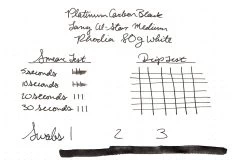 Platinum Carbon Black
Lamy Al-Star Medium
Rhodia 80g White
Smear Test Drip Test
5 seconds
10 seconds
20 seconds
30 seconds
Swabs 1 2 3